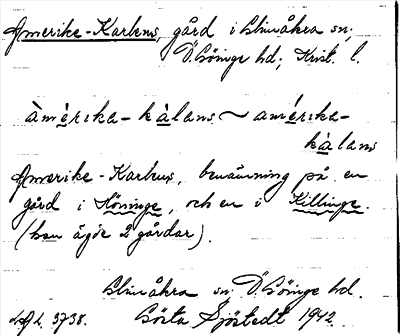 Amerike-Karlens, gård i Glimåkra sn;
Ö. Göinge hd; Krist. l.
àmérika-kàlans ~ amérika-
kàlans
Amerike-Karlens, benämning på en
gård i Höninge, och en i Killinge.
(han ägde 2 gårdar).
Glimåkra sn. Ö. Göinge hd.
LAL. 3738. Gösta Sjöstedt 1942.